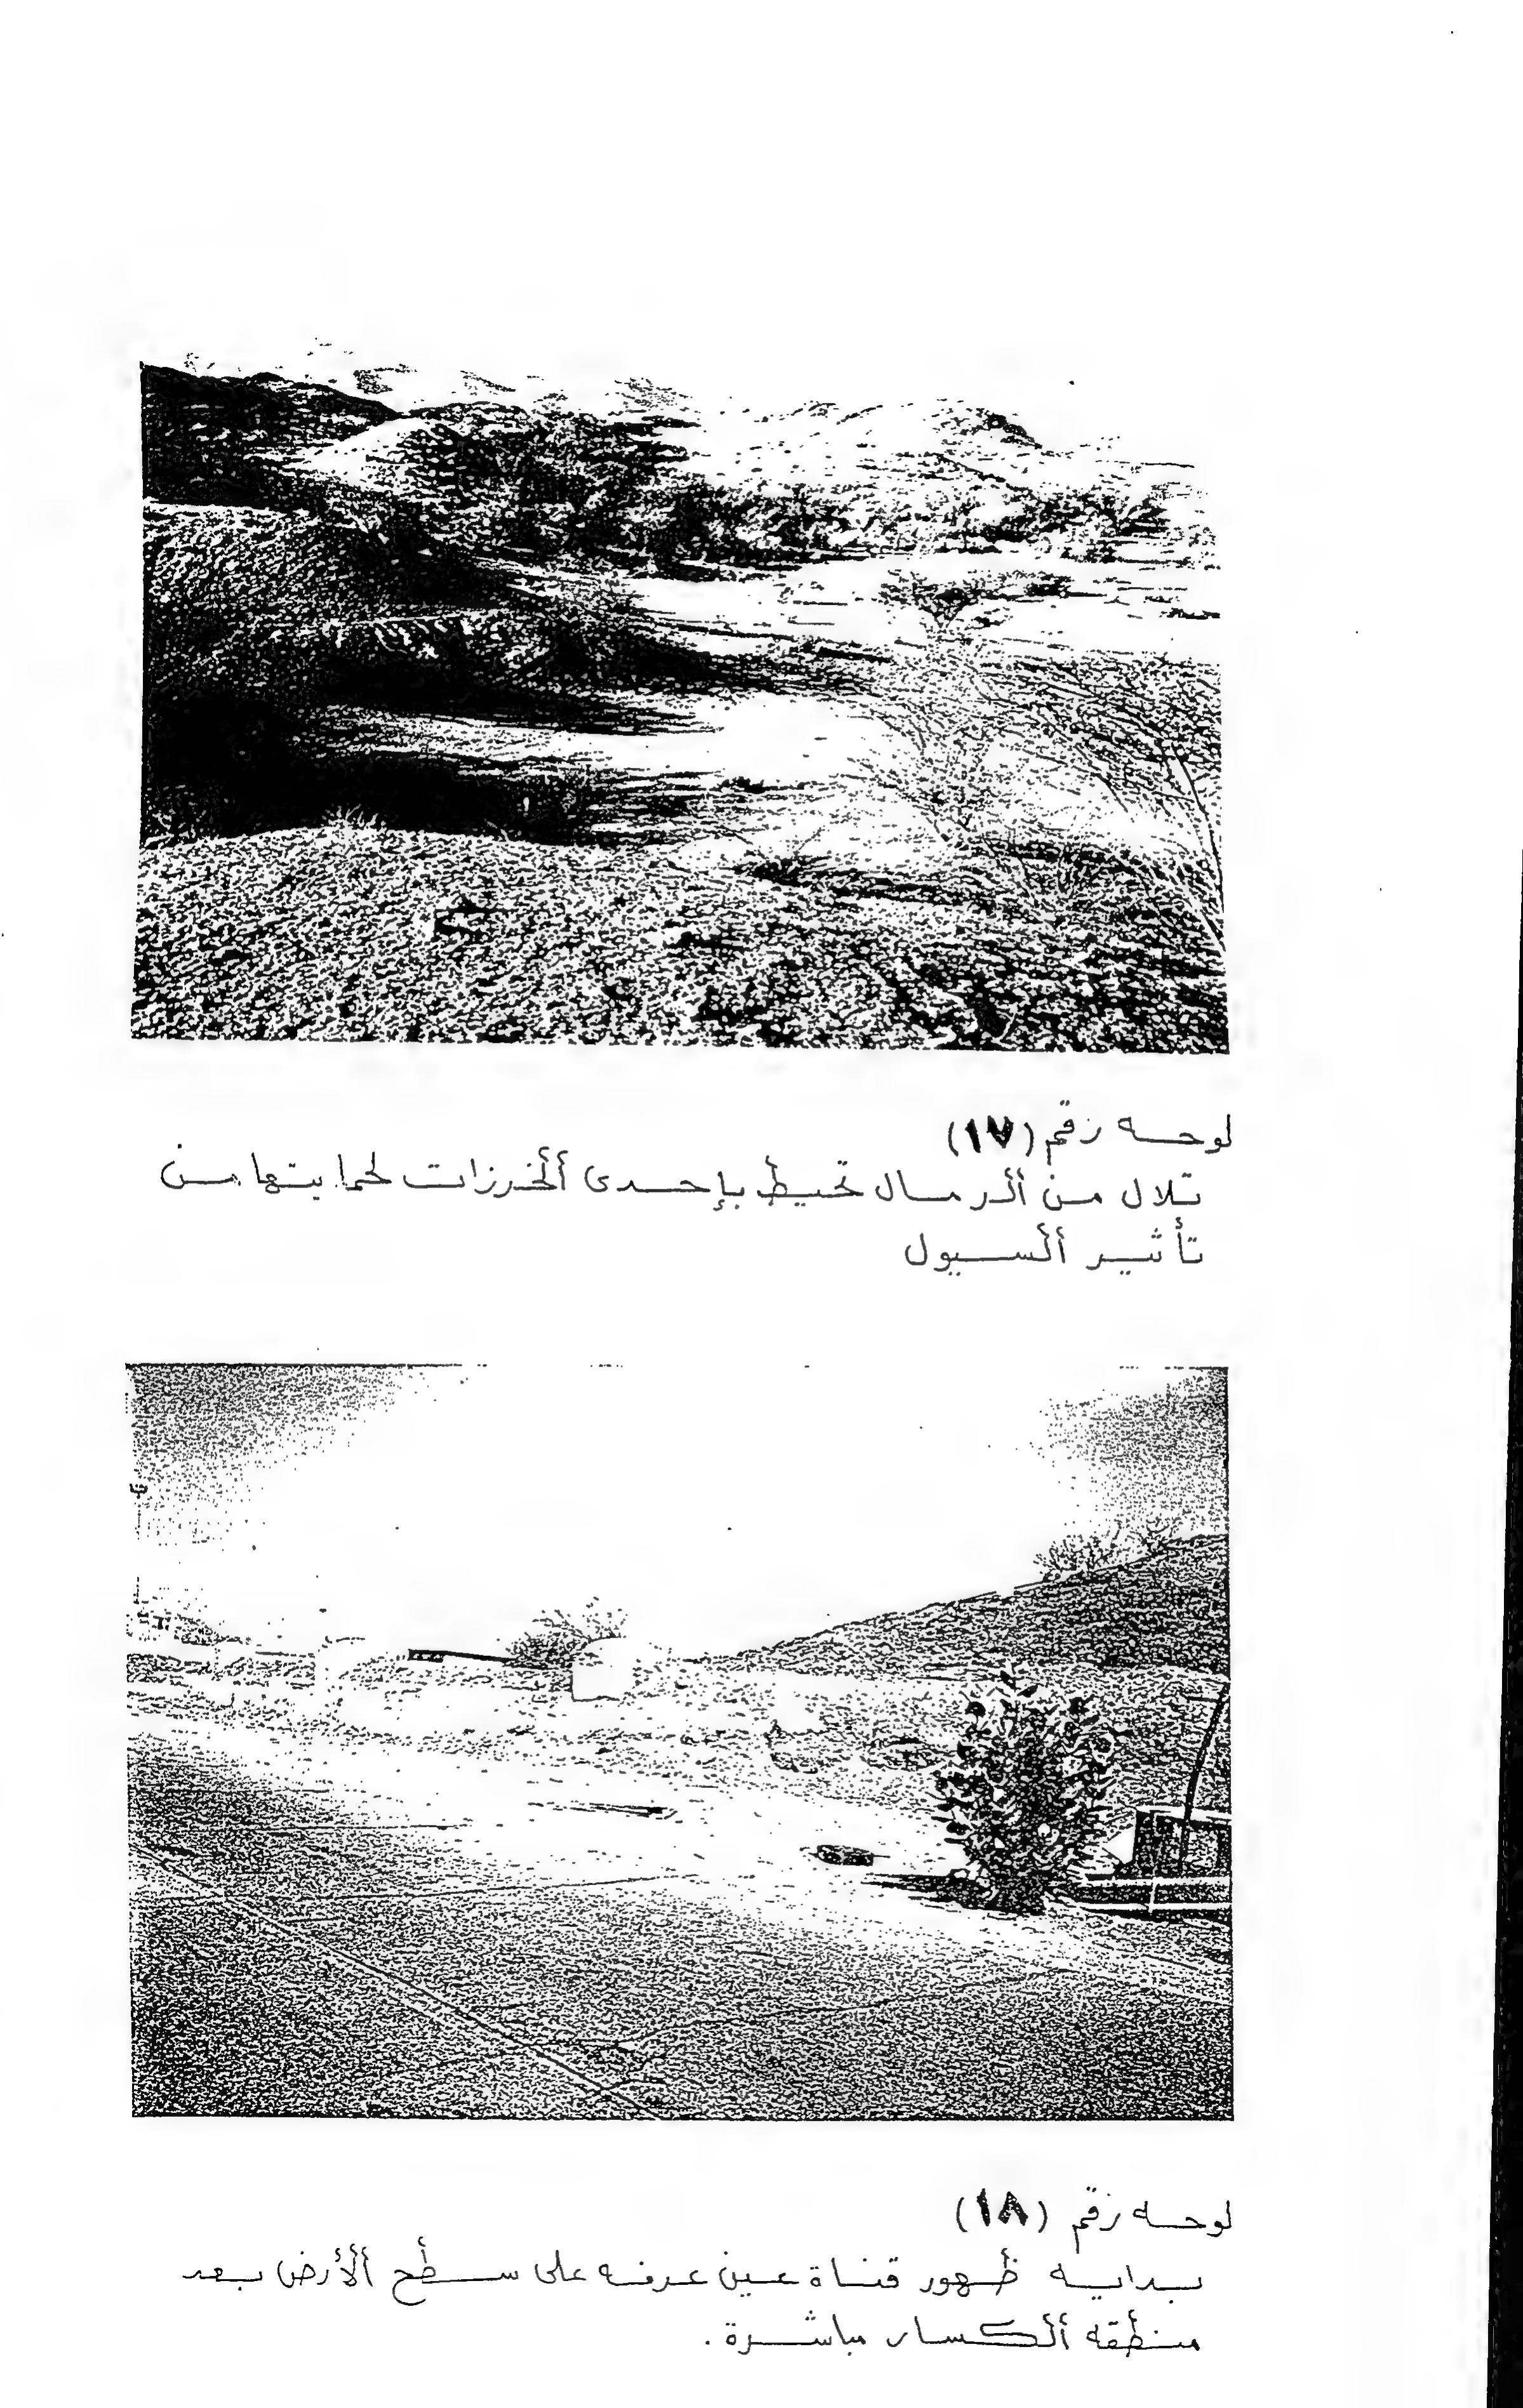 لوحه رقم (١٧)
تلال من الرمال تحيط بإحدى الخرزات لحمايتها من
تأثير السيول
لوحه رقم (١٨)
بدايه ظهور قناة عين عرفه على سطح الأرض بعد
منطقه الكسار مباشرة .